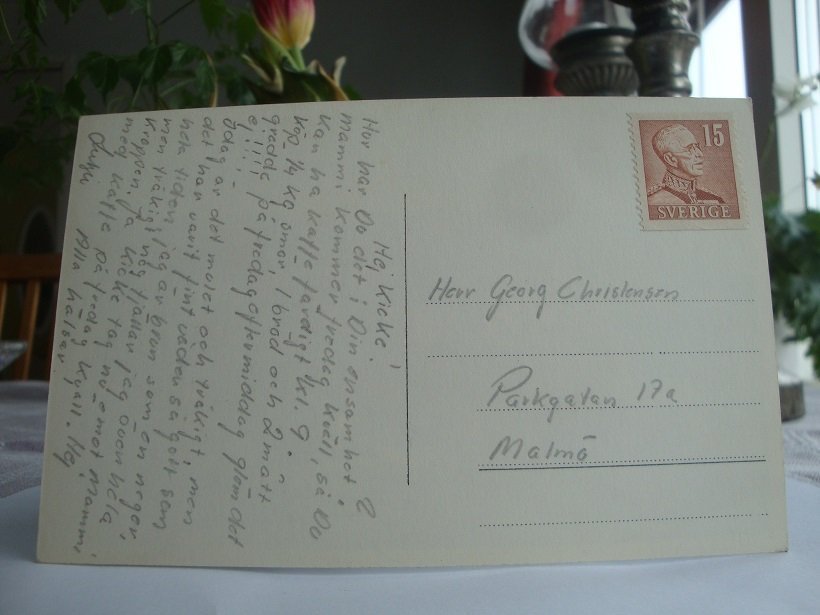 Hej Kicke!
Hur har Du det i Din ensamhet?
Mammi kommer fredag kväll, så Du
kan ha kaffe färdigt kl. 9.
Köp ¼ kg smör, 1 bröd och 2 mått
grädde på fredageftermiddag glöm det
ej!!!!
Idag är det mulet och tråkigt, men
det har varit fint väder så gott som
hela tiden. Jag är brun som en neger
men tråkigt nog fjällar jag över hela
kroppen. Ja Kicke tag nu emot Mammi
med kaffe på fredag kväll.
hälsar
15
SVERIGE
Herr Georg Christensen
Parkgatan 17a
Malmö